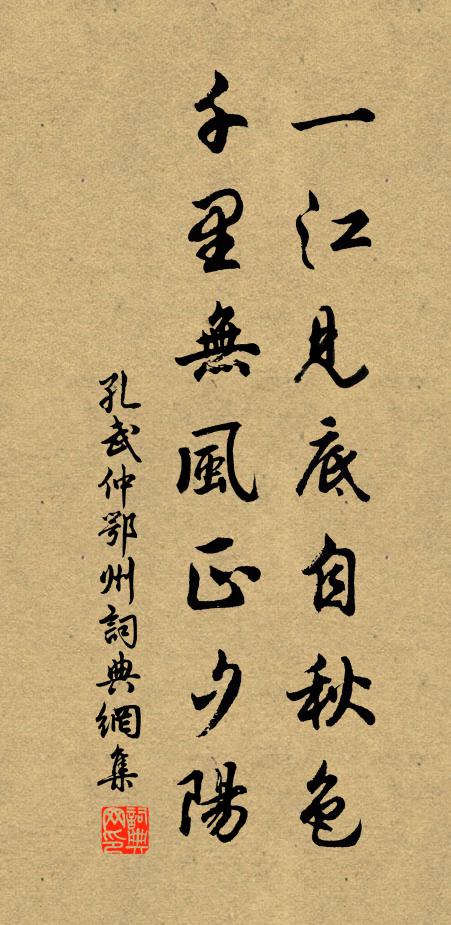 一江見底自秋色
千里無風正夕陽
孔武仲鄂州詞典網集
詞典網印